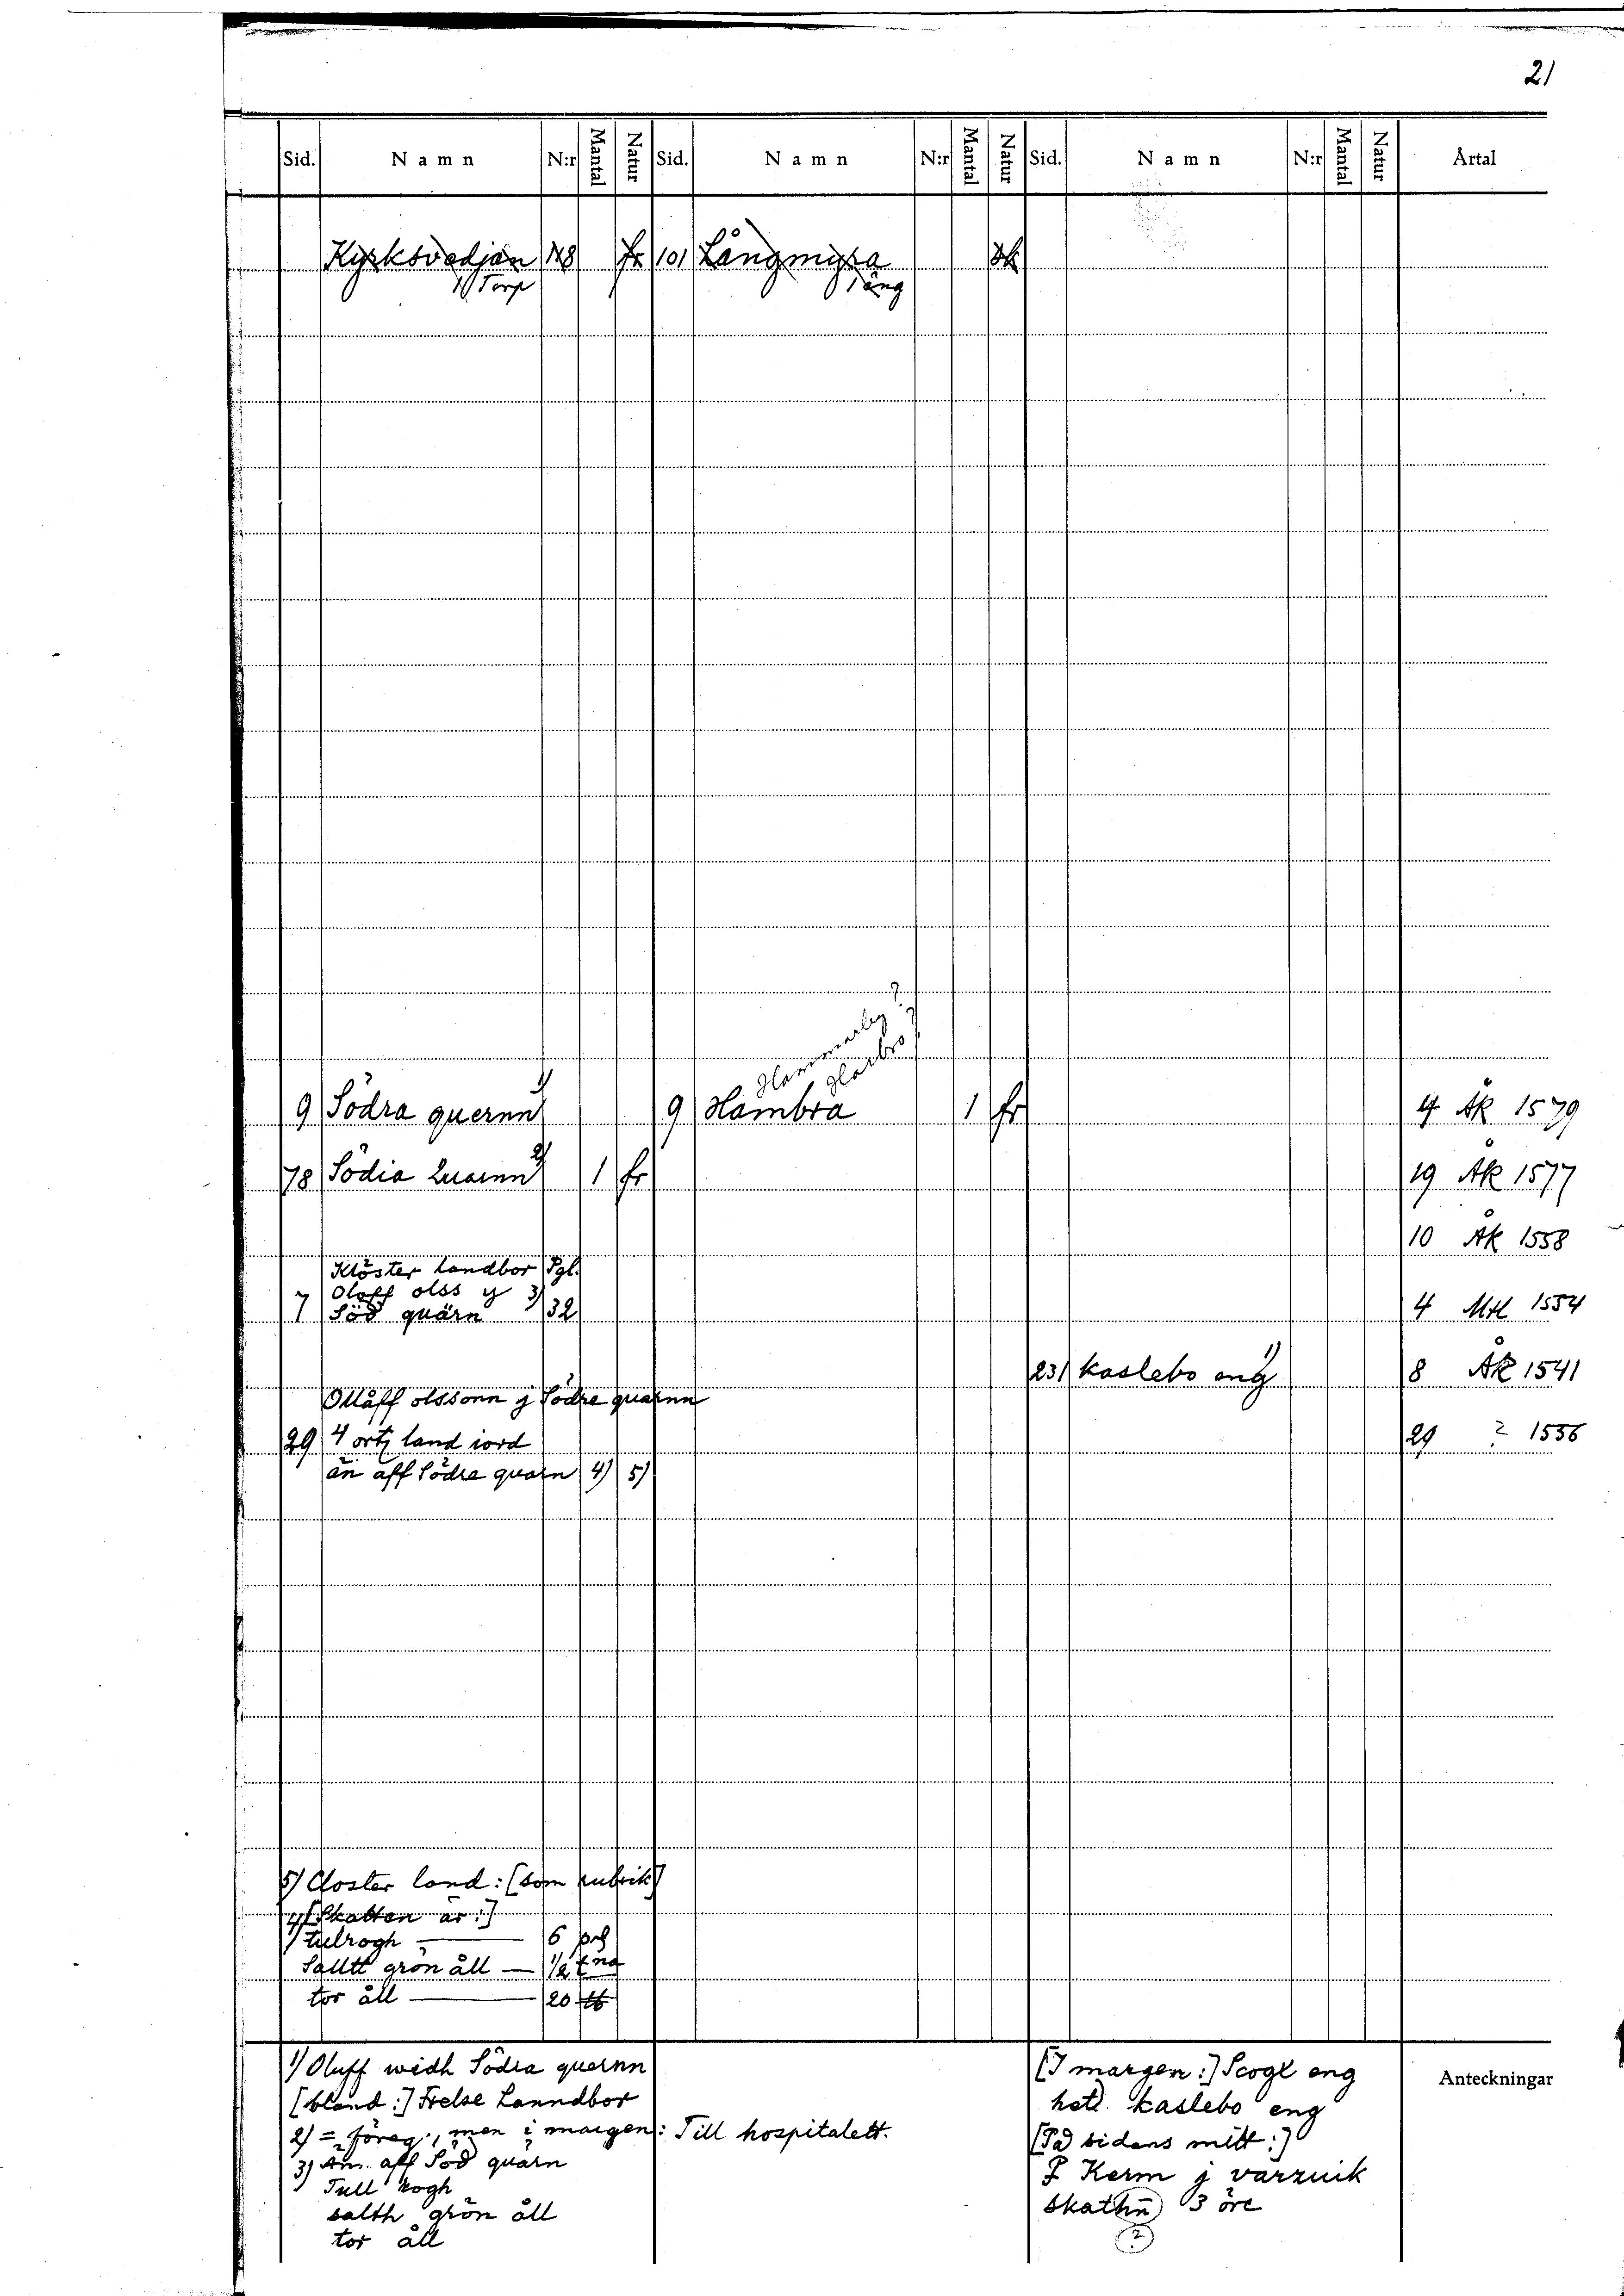 21
Sid. Namn N:r Mantal Natur Sid. Namn N:r Mantal Natur Sid. Namn N:r Mantal Natur Årtal
Kyrksvedjan 128 fr 101 Långmyra sk
1 Torp 1 äng
Hammarby ?
9 Södra quernn 1) 9 Hambra 1 fr 4 ÅK 1579
78 Södia Quarnn 2) 1 fr 19 ÅK 1577
10 ÅK 1558
Klöster landbor Pgl.
Oloff olss y 3)
7 Söd quärn 32 4 Mtl 1554
231 kaslebo eng 1) 8 ÅK 1541
Ollåff olssonn j Södre quarnn
29 4 ortz land iord 29 2 1556
än aff Södre quarn 4) 5)
5) Closter land: (som rubrik)
4) [Skatten är:]
tulrogh — 6
Salltt grön åll — 1/2
tör åll — 20
1) Oluff widh Södra quernn
[bland:] Frelse Lanndbor
2) = föreg., men i margen: Till hospitalett.
3) Än. aff Söd quärn
Tull Rogh
salth grön åll
tor åll
[I margen:] Scogz eng
hetl. kaslebo eng
[På sidans mitt:]
Kerm j varzuik
skathn 3 öre
(?)
Anteckningar